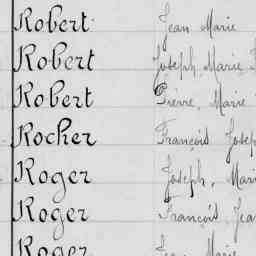 Robert Jean Marie
Robert Joseph Marie
Robert Pierre Marie
Rocher François Joseph
Roger Joseph, Marie
Roger François Jean
Roger Jean Marie